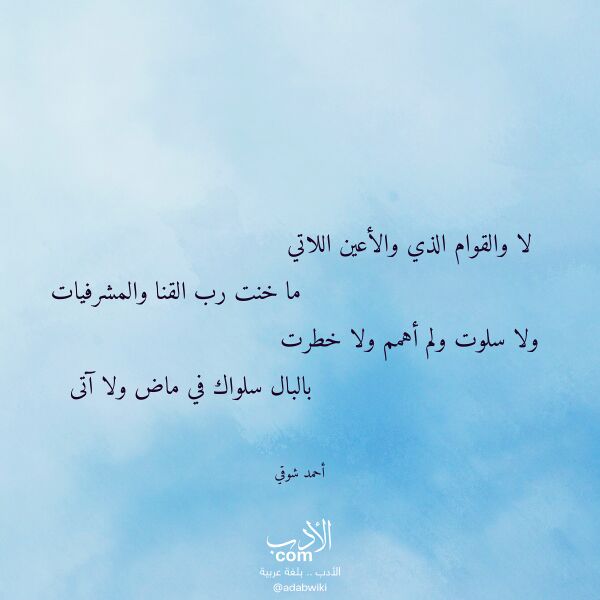 لا والقوام الذي والأعين اللاتي
ما خنت رب القنا والمشرفيات
ولا سلوت ولم أهمم ولا خطرت
بالبال سلواك في ماض ولا آتى
أحمد شوقي
الأدب
com
الأدب .. بلغة عربية
@adabwiki